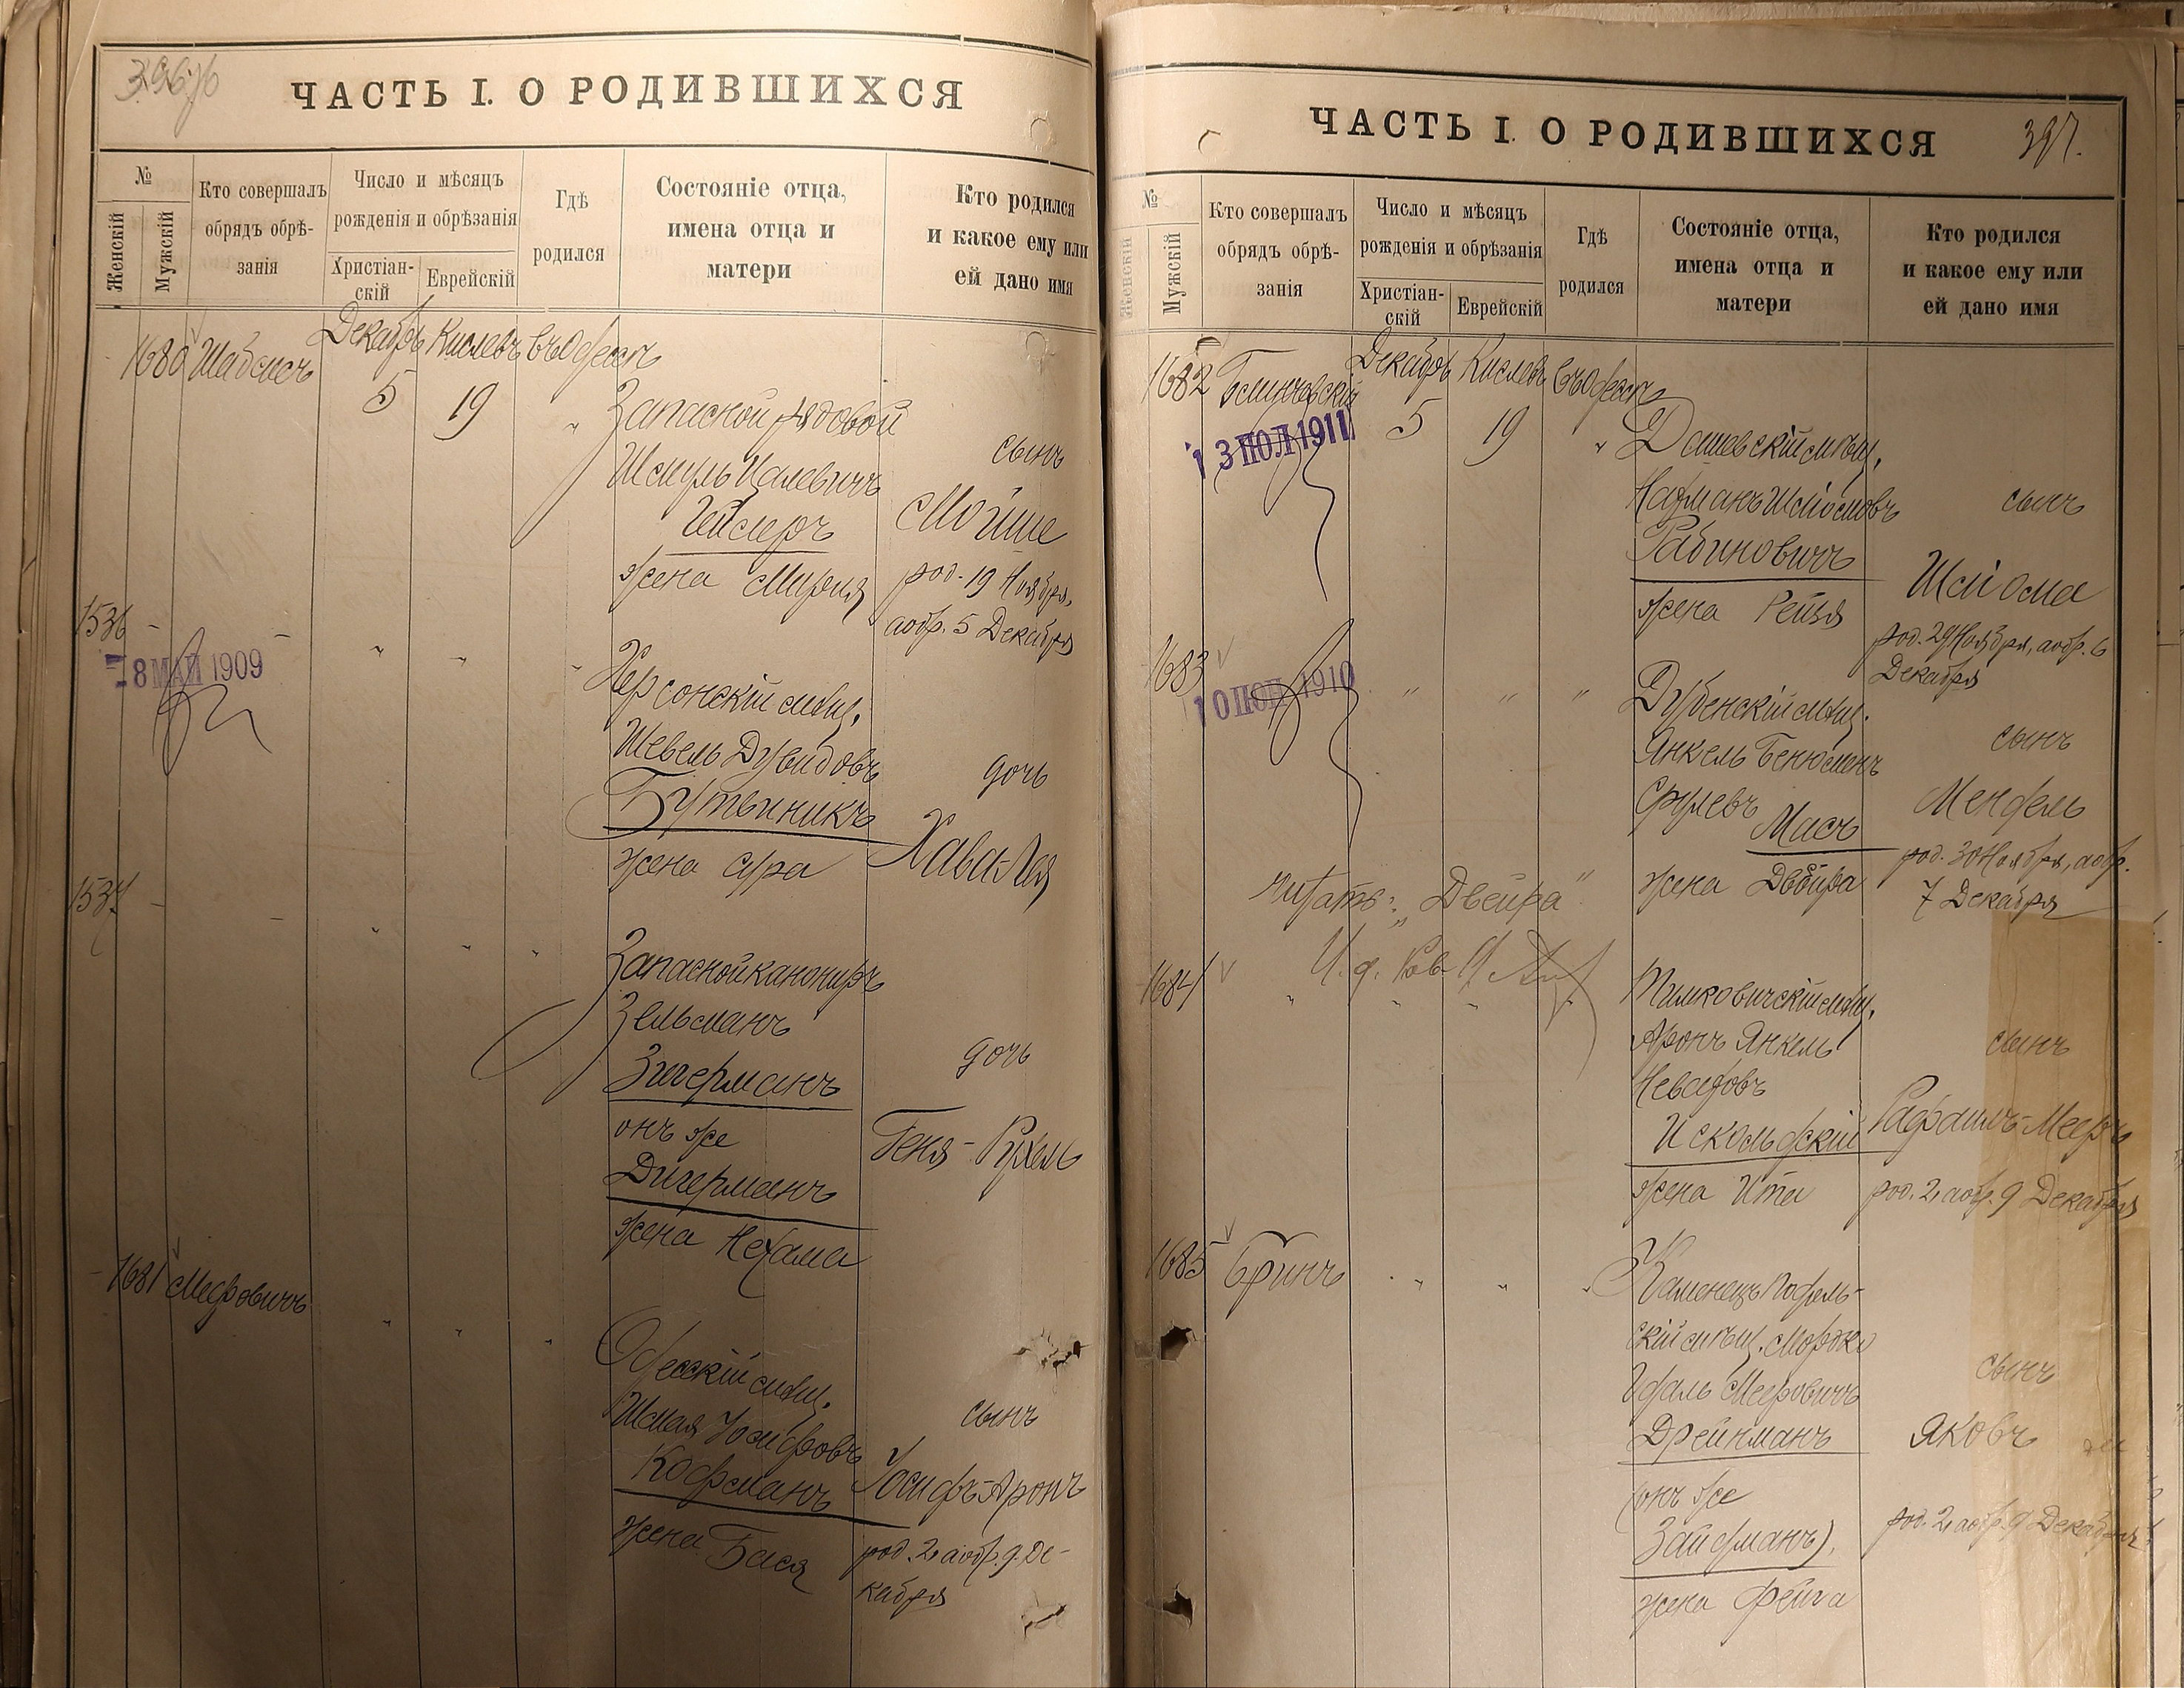 ЧАСТЬ I. О РОДИВШИХСЯ
№
Женскій
Мужскій
Кто совершалъ
обрядъ обрѣ-
занія
Число и мѣсяцъ
рожденія и обрѣзанія
Христіан-
скій
Еврейскій
Гдѣ
родился
Состояніе отца,
имена отца и
матери
Кто родился
и какое ему или
ей дано имя
1680 Шабсисъ Декабрь Кислевъ въ Одессѣ
5 19 "
Запасной рядовой
Шмуль Цалевичъ
Гейслеръ
жена Мирия
сынъ
Мойше
род. 19 Ноября,
а обр. 5 Декабря
1536 - - " " "
- 8 МАЙ 1909
Херсонскій мѣщ.
Шевель Дувидовъ
Бутвиникъ
жена Сура
дочь
Хава-Лея
1537 - - " " "
Запасной канониръ
Зельманъ
Зигерманъ
онъ же
Дигерманъ
жена Нехама
дочь
Геня-Рухель
- 1681 Мееровичъ " " "
Одесскій мѣщ.
Шмая Іосифовъ
Кофманъ
жена Бася
сынъ
Іосифъ-Аронъ
род. 2, а обр. 9 Де-
кабря
ЧАСТЬ I. О РОДИВШИХСЯ 397.
№
Женскій
Мужскій
Кто совершалъ
обрядъ обрѣ-
занія
Число и мѣсяцъ
рожденія и обрѣзанія
Христіан-
скій
Еврейскій
Гдѣ
родился
Состояніе отца,
имена отца и
матери
Кто родился
и какое ему или
ей дано имя
1682 Декабрь Кислевъ въ Одессѣ
13 ІЮЛ 1911 5 19 "
Дашевскій мѣщ.
Нахманъ Шліомовъ
Рабиновичъ
жена Рейзя
сынъ
Шліома
род. 29 Ноября, а обр. 6
Декабря
1683 " " "
10 1910
Дубенскій мѣщ.
Янкель Бенюменъ
Срулевъ
Масъ
жена Двойра
сынъ
Мендель
род. 30 Ноября, а обр.
7 Декабря
читать: „Двейра"
И. д. Рав.
1684 " " " "
Тимковичскій мѣщ.
Аронъ Янкель
Невахов
Искольдскій
жена Ита
сынъ
Рафаилъ-Мееръ
род. 2, а обр. 9 Декабря
1685 Бринъ " " "
Каменецъ Подоль-
скій мѣщ. Мордко
Удаль Мееровичъ
Дрейнманъ
(онъ же
Зайдманъ).
жена Фейга
сынъ
Яковъ
род. 2, а обр. 9 Декабря